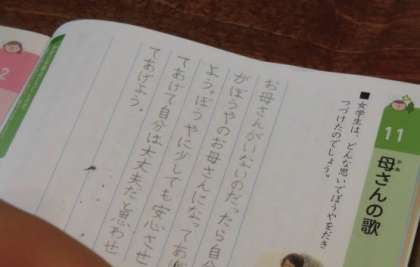 11
母さんの歌
かあ
■女学生は、どんな思いでぼうやをだき
つづけたのでしょう。
お母さんがいないのだったら自分
がぼうやのお母さんになってあげ
よう。ぼうやに少しでも安心させ
てあげて自分は大丈夫だと思わせ
てあげよう。
2